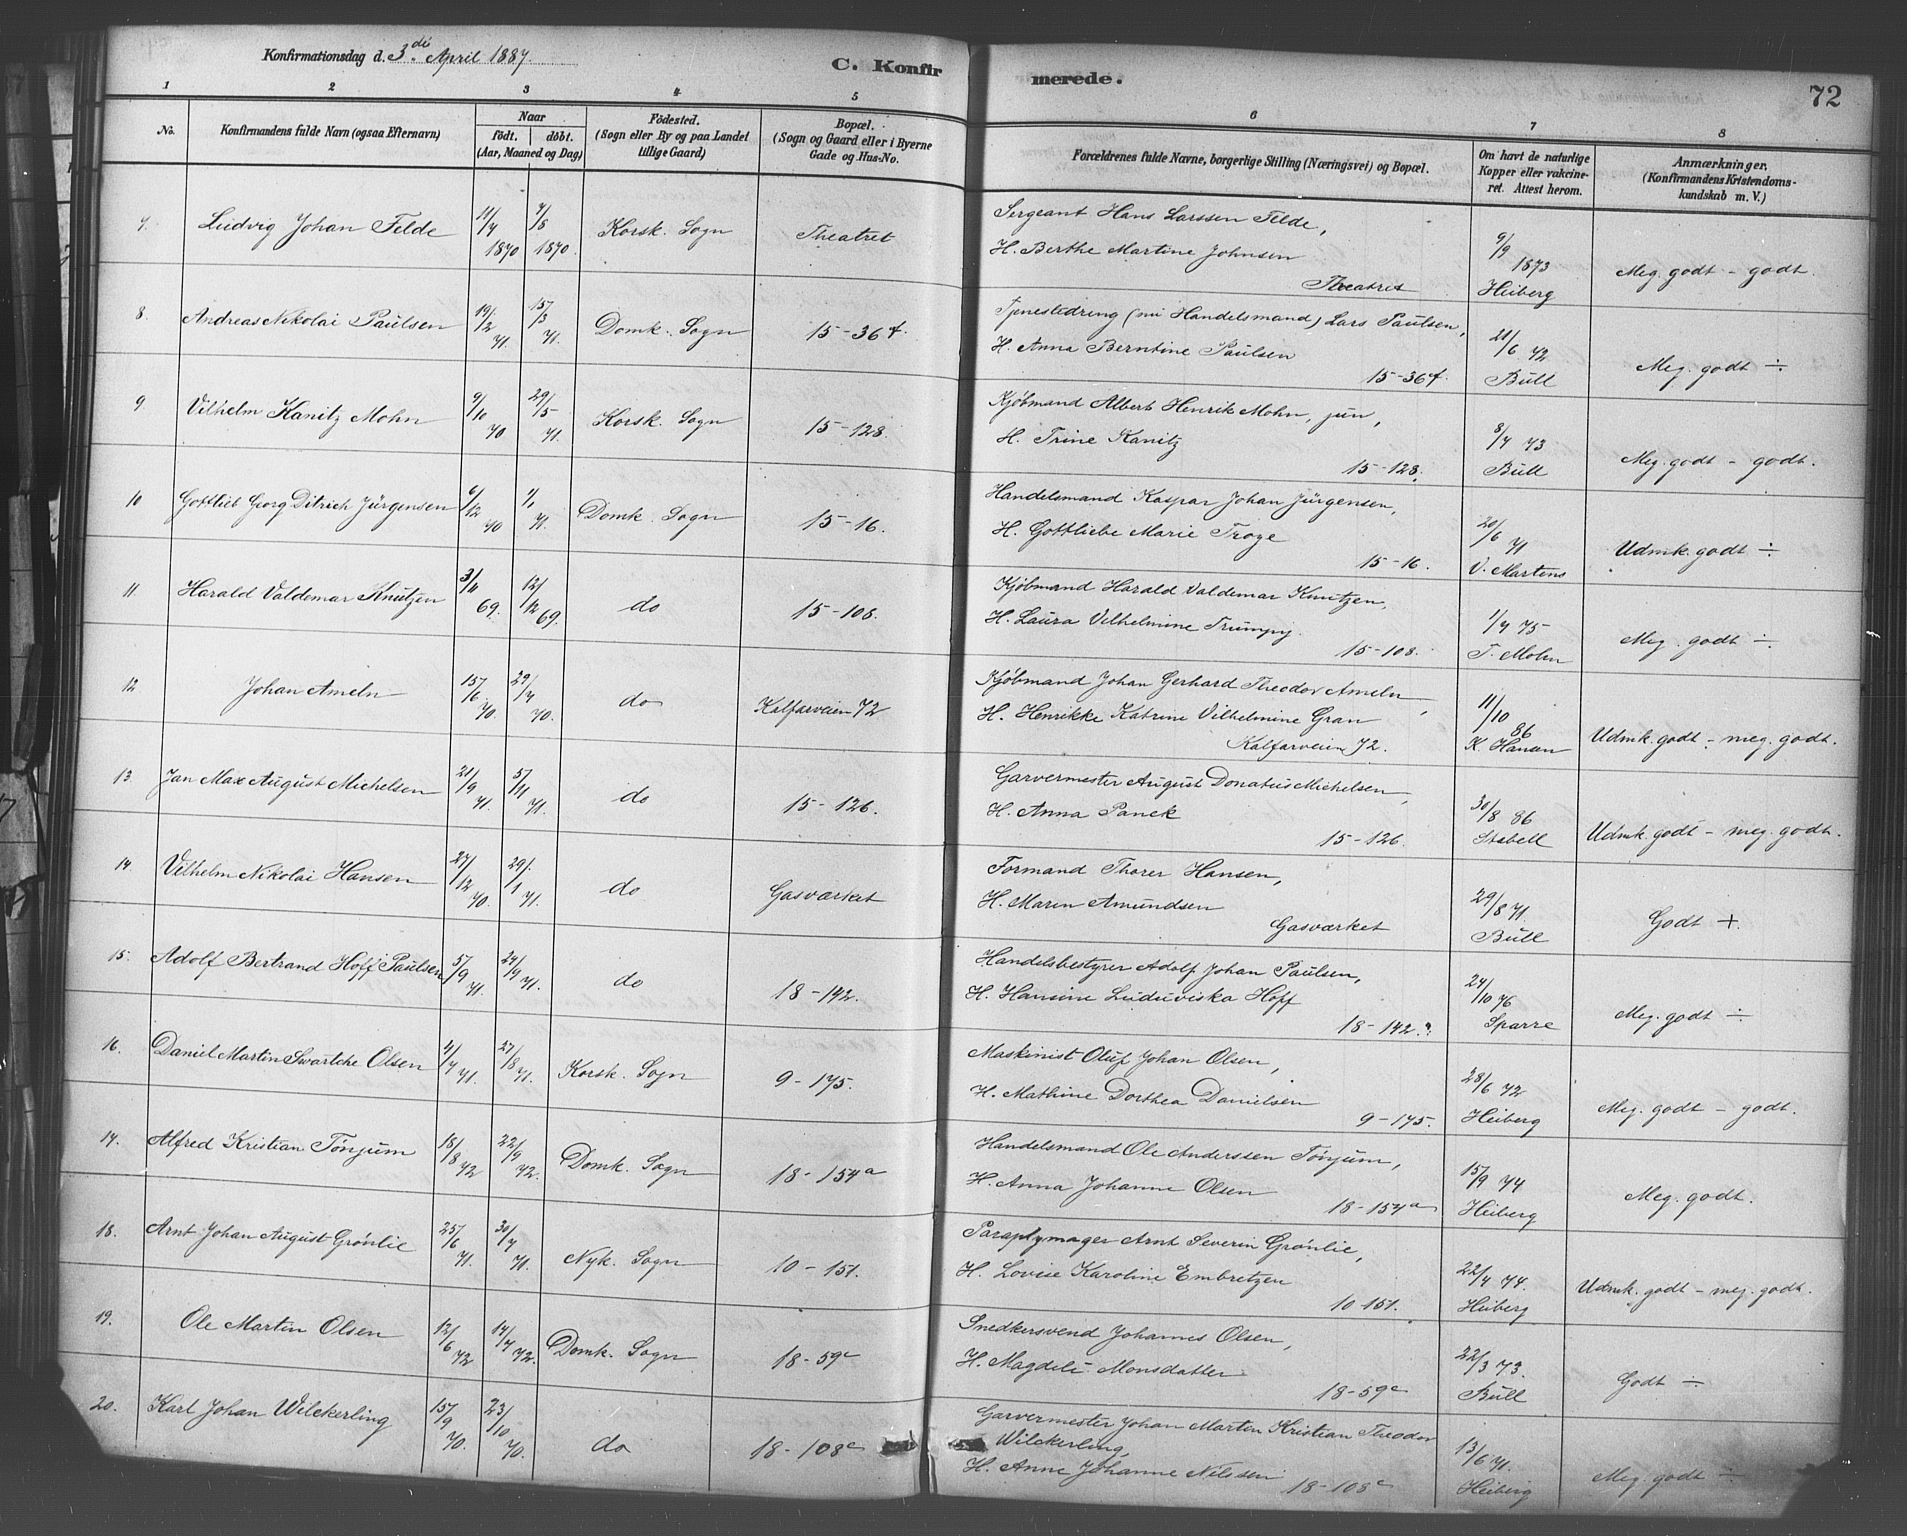 Konfirmationsdag d. 3die April 1887.
C. Konfirmerede.
72
1 2 3 4 5 6 7 8
No.
Konfirmandens fulde Navn (ogsaa Efternavn)
Naar
födt. döbt.
(Aar, Maaned og Dag)
Födested.
(Sogn eller By og paa Landet tillige Gaard)
Bopæl.
(Sogn og Gaard eller i Byerne Gade og Hus-No.
Forældrenes fulde Navne, borgerlige Stilling (Næringsvei) og Bopæl.
Om havt de naturlige Kopper eller vakcineret. Attest herom.
Anmærkninger,
(Konfirmandens Kristendomskundskab m. V.)
7. Ludvig Johan Telde 11/7 1870 7/8 1870. Korsk. Sogn Theatret Sergeant Hans Larssen Telde,
H. Berthe Martine Johnsen
Theatret 9/9 1873 Heiberg Meg. godt - godt.
8. Andreas Nikolai Paulsen 19/2 71. 15/3 71. Domk. Sogn 15-36 f. Tjenestedreng (nu Handelsmand) Lars Paulsen,
H. Anna Berntine Paulsen
15-36 f. 21/6 72 Bull Meg. godt ÷
9 Vilhelm Kanitz Mohn 9/10 70 29/5 71. Korsk. Sogn 15-128. Kjøbmand Albert Henrik Mohn, jun,
H. Trine Kanitz
15-128. 8/7 73 Bull Meg. godt - godt.
10 Gottlieb Georg Ditrich Jürgensen 6/12 70 1/1 71. Domk. Sogn 15-16. Handelsmand Kaspar Johan Jürgensen,
H. Gottliebe Marie Troye
15-16. 20/6 71 V. Martens Udmk. godt ÷
11. Harald Valdemar Knutzen 3/11 69. 12/12 69. do 15-108. Kjøbmand Harald Valdemar Knutzen,
H. Laura Vilhelmine Trumpy.
15-108. 1/7 75 T. Mohn Meg. godt ÷
12. Johan Ameln 15/6 70. 29/7 70. do Kalfarveien 72 Kjøbmand Johan Gerhard Theodor Ameln,
H. Henrikke Katrine Vilhelmine Gran
Kalfarveien 72. 11/10 86 K. Hansen Udmk. godt - meg. godt.
13. Jan Max August Michelsen 21/9 71. 5/11 71. do 15-126. Garvermester August Donatus Michelsen,
H. Anna Panck
15-126. 30/8 86 Stabell Udmk. godt - meg. godt.
14. Vilhelm Nikolai Hansen 27/12 70. 29/1 71. do Gasværket Formand Thorer Hansen,
H. Maren Amundsen
Gasværket 29/8 71. Bull Godt +
15. Adolf Bertrand Hoff Paulsen 5/9 71. 24/9 71. do 18-142. Handelsbestyrer Adolf Johan Paulsen,
H. Hansine Luduviska Hoff
18-142. 24/10 76 Sparre Meg. godt ÷
16. Daniel Martin Swartche Olsen 4/7 71. 27/8 71. Korsk. Sogn 9-175. Maskinist Oluf Johan Olsen,
H. Mathine Dorthea Danielsen
9-175. 28/6 72 Heiberg Meg. godt - godt.
17. Alfred Kristian Tønjum 18/8 72 22/9 72. Domk. Sogn 18-154a Handelsmand Ole Anderssen Tönjum,
H. Anna Johanne Olsen
18-154a 15/9 74 Heiberg Meg. godt.
18. Arnt Johan August Grönlie 25/6 71. 30/7 71. Nyk. Sogn 10-151. Paraplymager Arnt Severin Grönlie,
H. Lovise Karoline Embretzen
10-151. 22/7 74. Heiberg Udmk. godt - meg. godt.
19. Ole Martin Olsen 12/6 72 14/7 72. Domk. Sogn 18-59c Snedkersvend Johannes Olsen,
H. Magdeli Monsdatter
18-59c 22/3 73. Bull Godt ÷
20. Karl Johan Wilckerling 15/9 70. 23/10 70. do 18-108c Garvermester Johan Martin Kristian Theodor
Wilckerling,
H. Anne Johanne Nilssen
18-108c 13/6 71. Heiberg Meg. godt ÷